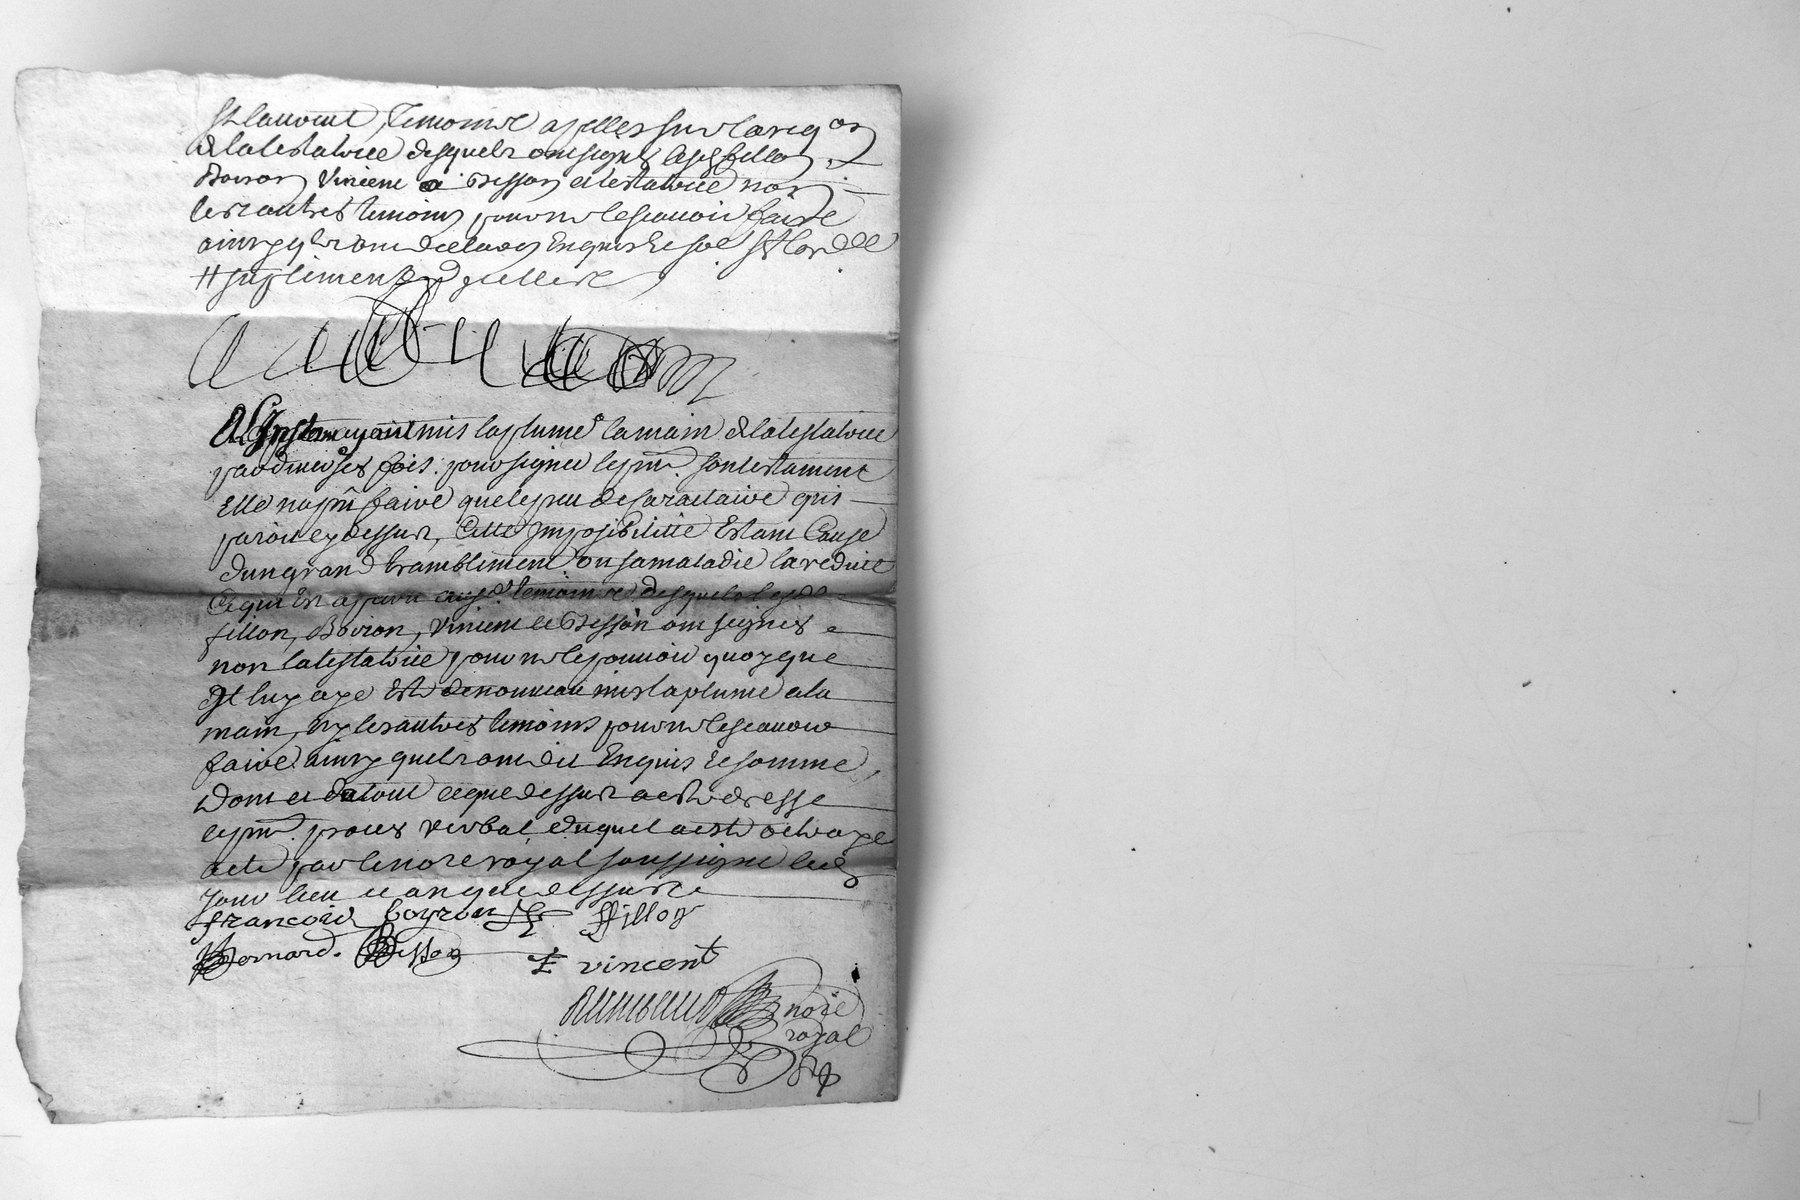 St Laurent, temoins apelles sur la req on
de la testatrice desquels ont signes lesds fillon,
Boiron, Vincent et Besson et testatrice non
les autres temoins pour ne le scauoir faire
ainsy quils ont declaré Enquis Et so
suplimens
mis la plume a la main de la testatrice
par diuerses fois pour signer le pnt son testament
Elle na pu faire que le peu de caractaire qui
paroit cy dessus, Cette Imposibilitte Estant Cause
dun grand tramblement ou sa maladie la reduit
Ce qui Est aparu temoins desquels lesds
fillon, Boiron, Vincent et Besson ont signes et
non la testatrice pour ne le pouuoir quoyque
Il luy aye Esté de nouueau mis la plume a la
main, ny les autres temoins pour ne le scauoir
faire ainsy quils ont dit Enquis Et somme,
Dont et du tout ce que dessus a esté dresse
le pnt proces verbal duquel a esté octroye
acte par le nore royal soussigne led
Jour lieu et an que dessus
francois boyron fillon
Bernard. Besson vincent
nore
royal